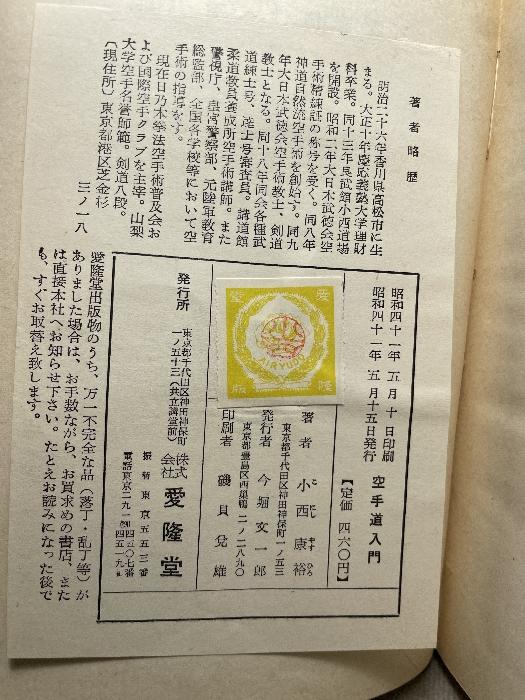 著者略歴
明治二十六年香川県高松市に生
まる。大正十年慶応義塾大学理財
科卒業。同十三年良武館小西道場
を開設。昭和二年大日本武徳会空
手術精錬証の称号を受く。同八年
神道自然流空手術を創始す。同九
年大日本武徳会空手術教士、剣道
教士となる。同十八年同会各種武
道錬士号、達士号審査員。講道館
柔道教員養成所空手術講師。また
警視庁、皇宮警察部、元陸軍教育
総監部、全国各学校等において空
手術の指導をす。
現在日乃木拳法空手術普及会お
よび国際空手クラブを主宰。山梨
大学空手名誉師範。剣道八段。
(現住所) 東京都港区芝金杉
三ノ一八
昭和四十一年五月十日印刷
昭和四十一年五月十五日発行
空手道入門
【定価 四六〇円】
著者 小西康裕
こにしやすひろ
東京都千代田区神田神保町一ノ五三
発行者 今堀文一郎
東京都豊島区西巣鴨二ノ二八九〇
印刷者 磯貝兌雄
愛隆
出版
AIRYUDO
発行所
東京都千代田区神田神保町
一ノ五十三(共立講堂前)
株式会社 愛隆堂
振替東京五五三番
電話東京二九一局四五〇七番
四五一九番
愛隆堂出版物のうち、万一不完全な品(落丁・乱丁等)が
ありました場合は、お手数ながら、お買求めの書店、また
は直接本社へお知らせ下さい。たとえお読みになった後で
も、すぐお取替え致します。